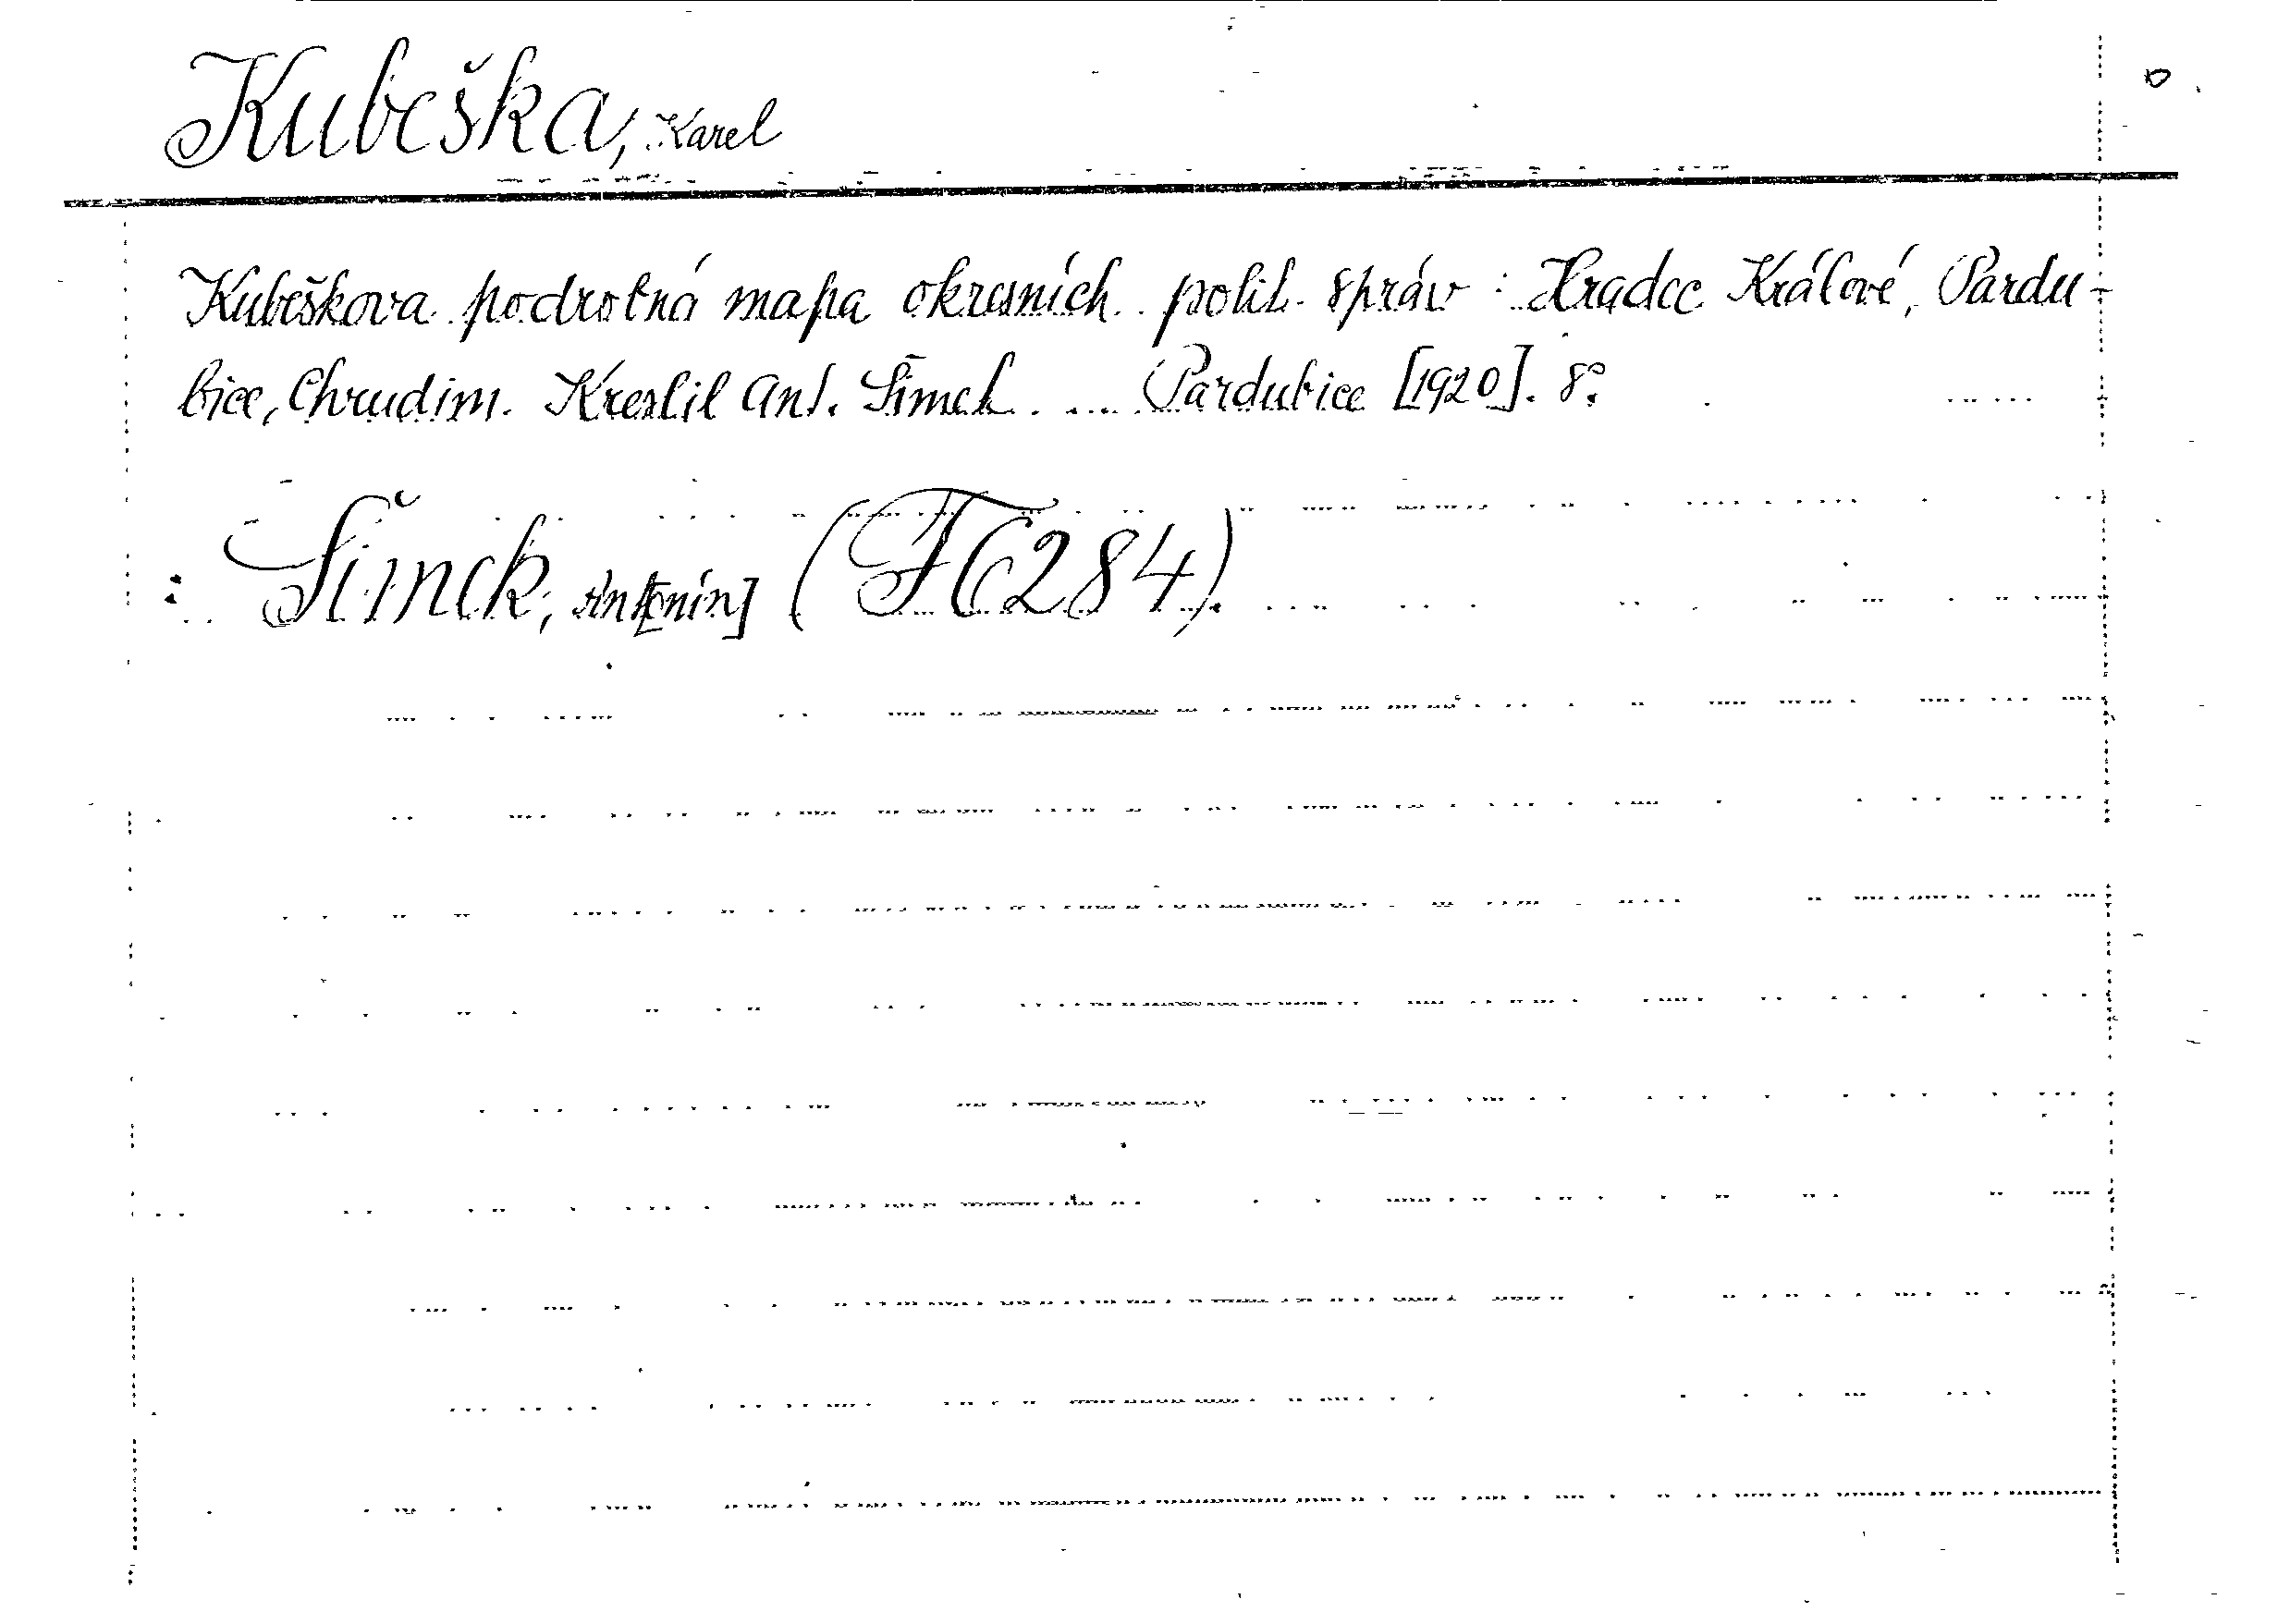 Kubeška, Karel
Kubeškova podrobná mapa okresních polit. správ: Hradec Králové, Pardu-
bice, Chrudim. Kreslil Ant. Šimek. ... Pardubice [1920]. 8°.
: Šimek, Ant[onín] (F6284).